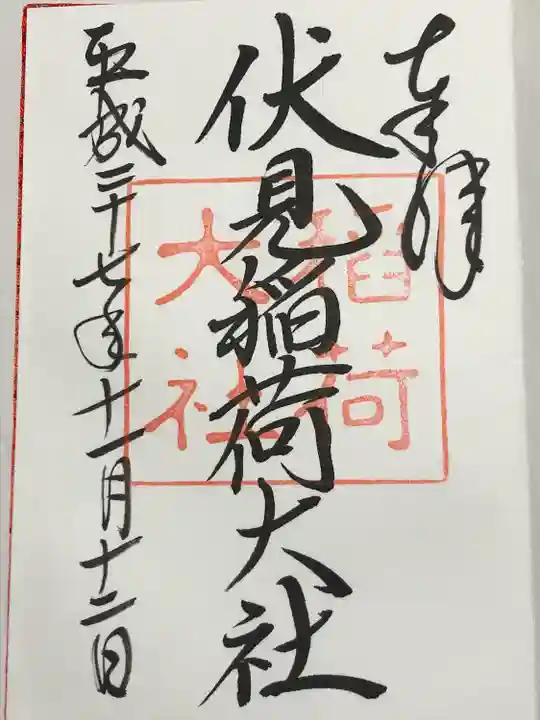 奉拝
伏見稲荷大社
平成二十七年十一月十二日
稲荷
大社